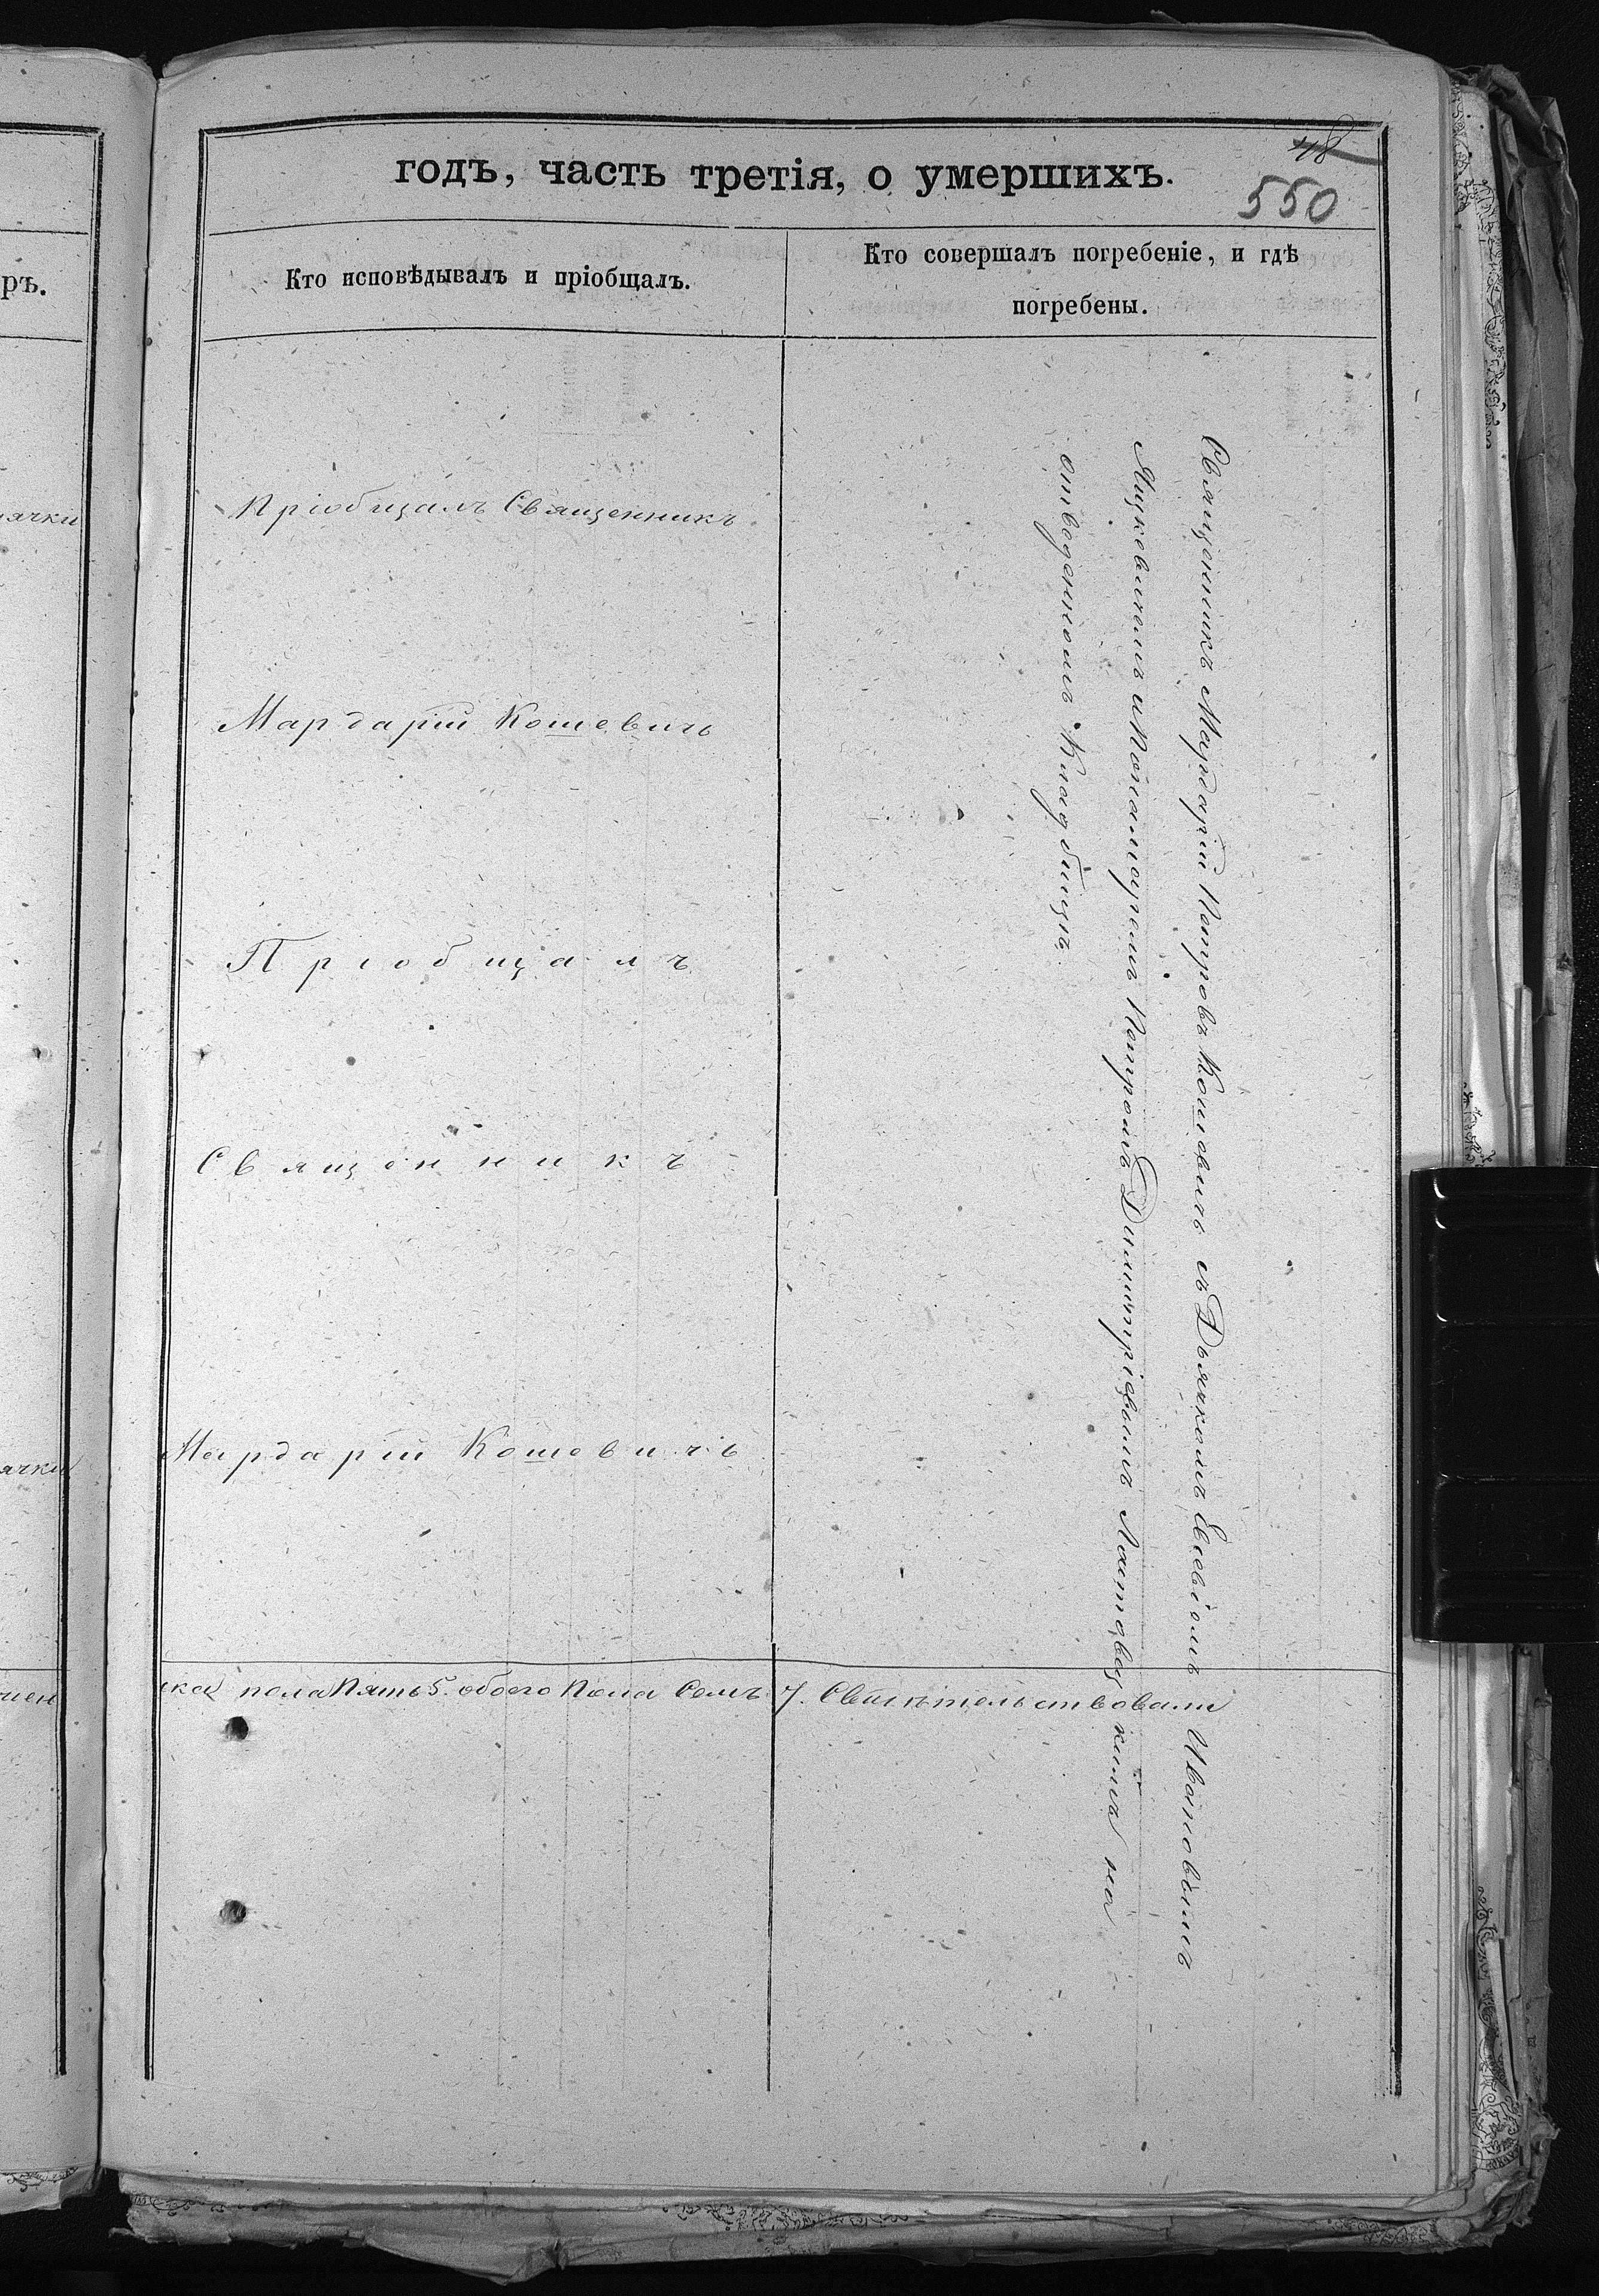 48
годъ, часть третія, о умершихъ.
550
Кто исповѣдывалъ и пріобщалъ.
Кто совершалъ погребеніе, и гдѣ
погребены.
ръ.
ячки
Пріобщалъ Священникъ
Мардарій Кошевичъ
Пріобщалъ
Священникъ
Мардарій Кошевичъ
ячки
Священникъ Мардарій Петровъ Кошевичъ съ Дьячкомъ Евсевіемъ Ивановымъ
Яцкевичемъ и Пономаремъ Петромъ Димитріевымъ Лаптевъ на
отведенномъ Кладбищѣ.
ска пола Пять 5. обоего Пола Семь 7. Свидѣтельствовали